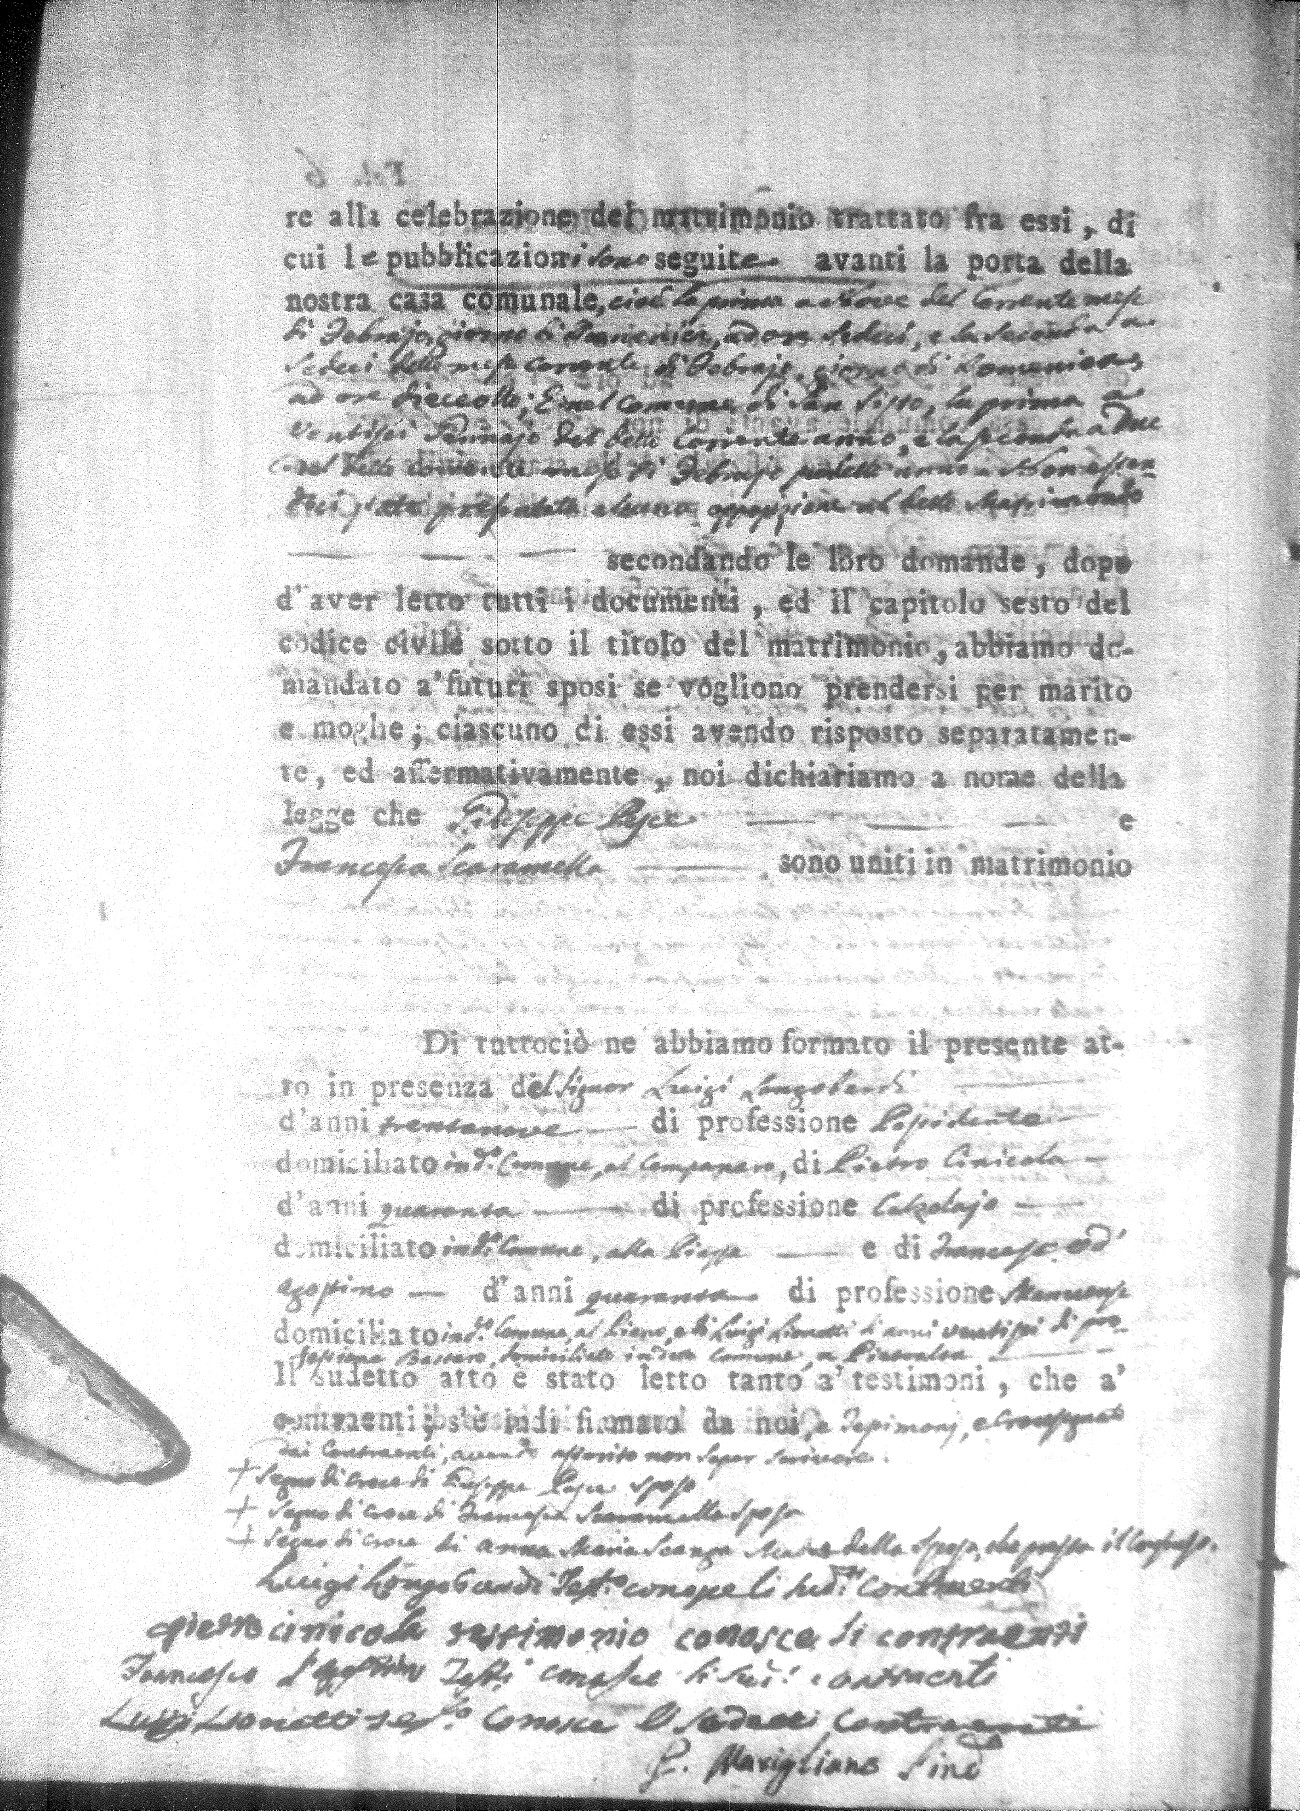 re alla celebrazione del matrimonio trattato fra essi, di
cui le pubblicazioni sono seguite avanti la porta della
nostra casa comunale, cioè la prima a Nove del Corrente mese
di Febrajo, giorno di Domenica, ad ore sedici, e la seconda a
Sedici detto mese Corrente di Febrajo, giorno di Domenica,
ad ore dieceotto; E nel Comune di San Sisto, la prima a
Ventisei Gennajo del detto Corrente anno, e la seconda a Due
del detto mese di Febrajo
stata alcuna opposizione al detto Matrimonio
secondando le loro domande, dopo
d'aver letto tutti i documenti, ed il capitolo sesto del
codice civile sotto il titolo del matrimonio, abbiamo do-
mandato a' futuri sposi se vogliono prendersi per marito
e moglie; ciascuno di essi avendo risposto separatamen-
te, ed affermativamente, noi dichiariamo a nome della
legge che Giuseppe Pepe e
Francesca Scaramella sono uniti in matrimonio
Di tuttociò ne abbiamo formato il presente at-
to in presenza del Signor Luigi Longobardi
d'anni trentanove di professione
domiciliato in d.o Comune, al Campanaro, di Pietro Cinicola
d'anni quaranta di professione Calzolajo
domiciliato in d.o Comune, alla Piazza e di Francesco d'
Agostino d'anni quaranta di professione
domiciliato in d.o Comune, al Piano, e di Luigi Lionetti di anni ventisei di pro-
fessione domiciliato in detto Comune, a
Il sudetto atto è stato letto tanto a' testimoni, che a'
contraenti; s'è indi firmato da noi, e Testimonj, e Crocesegnato
dai Contraenti, avendo asserito non saper scrivere.
+ Segno di croce di Giuseppe Pepe sposo
+ Segno di croce di Francesca Scaramella sposa
+ Segno di croce di Anna Maria Scanga Madre della Sposa, che presta il Consenso.
Luigi Longobardi Test.o conosce li sud.ti Contraenti
pietro cinicola testimonio conosce li contraenti
Francesco d'Agostino Test.o conosce li sud.i contraenti
Luiggi Lionetti test.o Conosce li sudetti Contraenti
G. Marigliano Sind.o